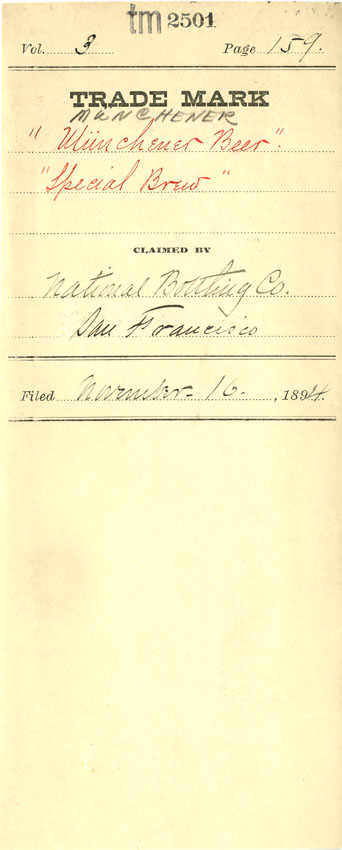 tm 2501
Vol. 3 Page 159.
TRADE MARK
MÜNCHENER
"Münchener Beer".
"Special Brew"
CLAIMED BY
National Bottling Co.
San Francisco
Filed November 16. , 1894.